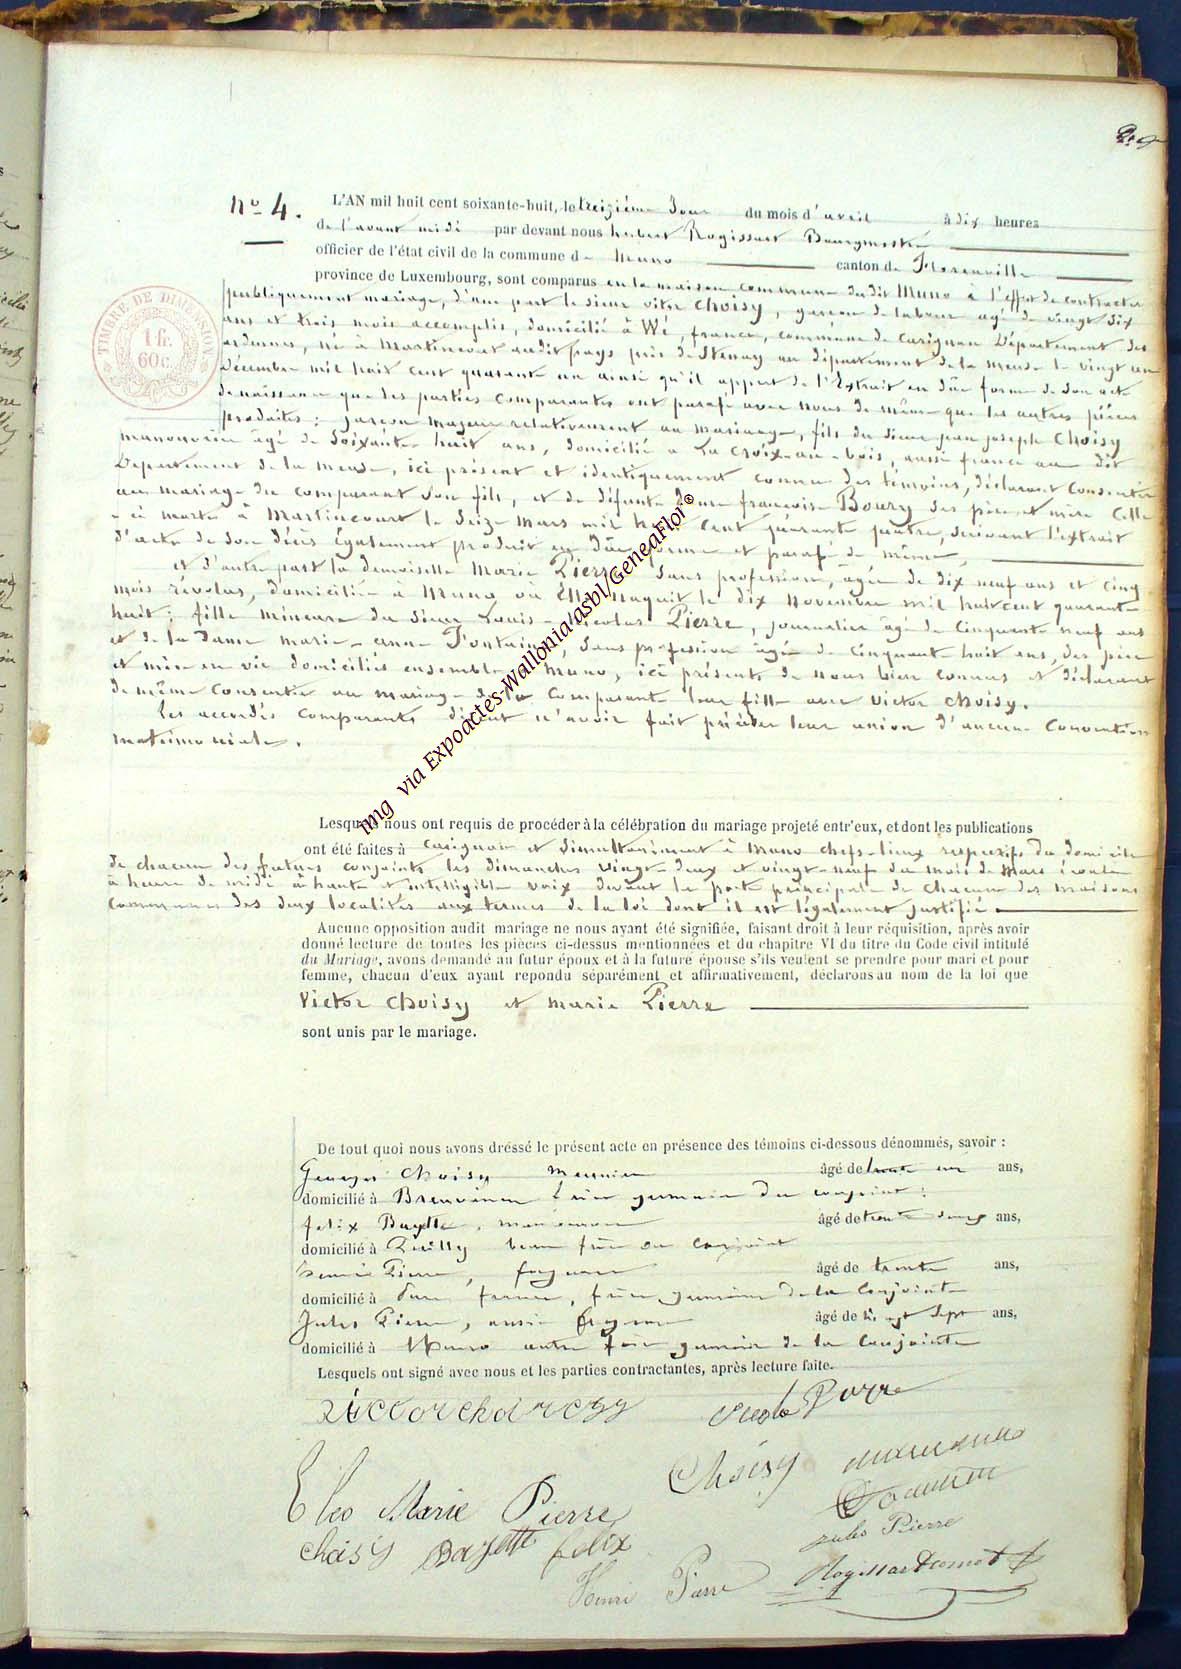 nº 4.
L'AN mil huit cent soixante-huit, le treizième Jour du mois d'avril à dix heures
de l'avant midi par devant nous hubert Rogissart Bourgmestre
officier de l'état civil de la commune de Muno canton de Florenville
province de Luxembourg, sont comparus en la maison commune dudit Muno à l'effet de contracter
publiquement mariage, d'une part le sieur victor Choisy, garçon de labour agé de vingt six
ans et trois mois accomplis, domicilié à Wé, france, commune de Carignan Département des
ardennes, né à Martincourt audit pays près de Stenay au département de la meuse le vingt un
Décembre mil huit cent quarante un ainsi qu'il appert de l'Extrait en dûe forme de son acte
de naissance que les parties comparantes ont parafé avec nous de même que les autres pièces
produites; garçon majeur relativement au mariage, fils du sieur jean joseph Choisy
manouvrier âgé de soixante huit ans, domicilié à La Croix-au-bois, aussi france au dit
Département de la Meuse, ici présent et identiquement connu des témoins, déclarant Consentir
au mariage du comparant son fils, et de défunte dame françoise Boury ses père et mère Celle
-ci morte à Martincourt le Seize Mars mil huit cent quarante quatre, suivant l'extrait
d'acte de son décès également produit en dûe forme et parafé de même
et d'autre part la demoiselle Marie Pierre sans profession, âgée de dix neuf ans et cinq
mois révolus, domiciliée à Muno où Elle naquit le dix novembre mil huit cent quarante
huit; fille mineure du sieur Louis-Nicolas Pierre, journalier âgé de Cinquante neuf ans
et de la Dame marie-anne Fontaine, sans profession âgée de cinquante huit ans, ses père
et mère en vie domiciliés ensemble à Muno, ici présents de nous bien connus et déclarant
de même Consentir au mariage de la Comparante leur fille avec victor Choisy.
Les accordés Comparants disent n'avoir fait précéder leur union d'aucune Convention
matrimoniale.
Lesquels nous ont requis de procéder à la célébration du mariage projeté entr'eux, et dont les publications
ont été faites à Carignan et simultanément à Muno chefs-lieux respectifs du domicile
de chacun des futurs conjoints les dimanches vingt-deux et vingt-neuf du mois de Mars écoulé
à heure de midi à haute et intelligible voix devant la porte principale de chacune des maisons
communes des deux localités aux termes de la loi dont il est légalement justifié.
Aucune opposition audit mariage ne nous ayant été signifiée, faisant droit à leur réquisition, après avoir
donné lecture de toutes les pièces ci-dessus mentionnées et du chapitre VI du titre du Code civil intitulé
du Mariage, avons demandé au futur époux et à la future épouse s'ils veulent se prendre pour mari et pour
femme, chacun d'eux ayant repondu séparément et affirmativement, déclarons au nom de la loi que
Victor Choisy et marie Pierre
sont unis par le mariage.
De tout quoi nous avons dréssé le présent acte en présence des témoins ci-dessous dénommés, savoir :
Georges Choisy Meunier âgé de trente un ans,
domicilié à frère germain du conjoint;
felix Bayette, manoeuvre âgé de trente deux ans,
domicilié à Puilly beau frère du Conjoint
henri Pierre, âgé de trente ans,
domicilié à france, frère germain de la Conjointe
Jules Pierre, aussi âgé de vingt sept ans,
domicilié à Muno autre frère germain de la Conjointe
Lesquels ont signé avec nous et les parties contractantes, après lecture faite.
Pierre
Choisy
Marie Pierre
Choisy Bayette felix
jules Pierre
Henri Pierre
TIMBRE DE DIMENSION
1 fr.
60 c.
img via Expoactes-Wallonia/asbl/GeneaFloi©